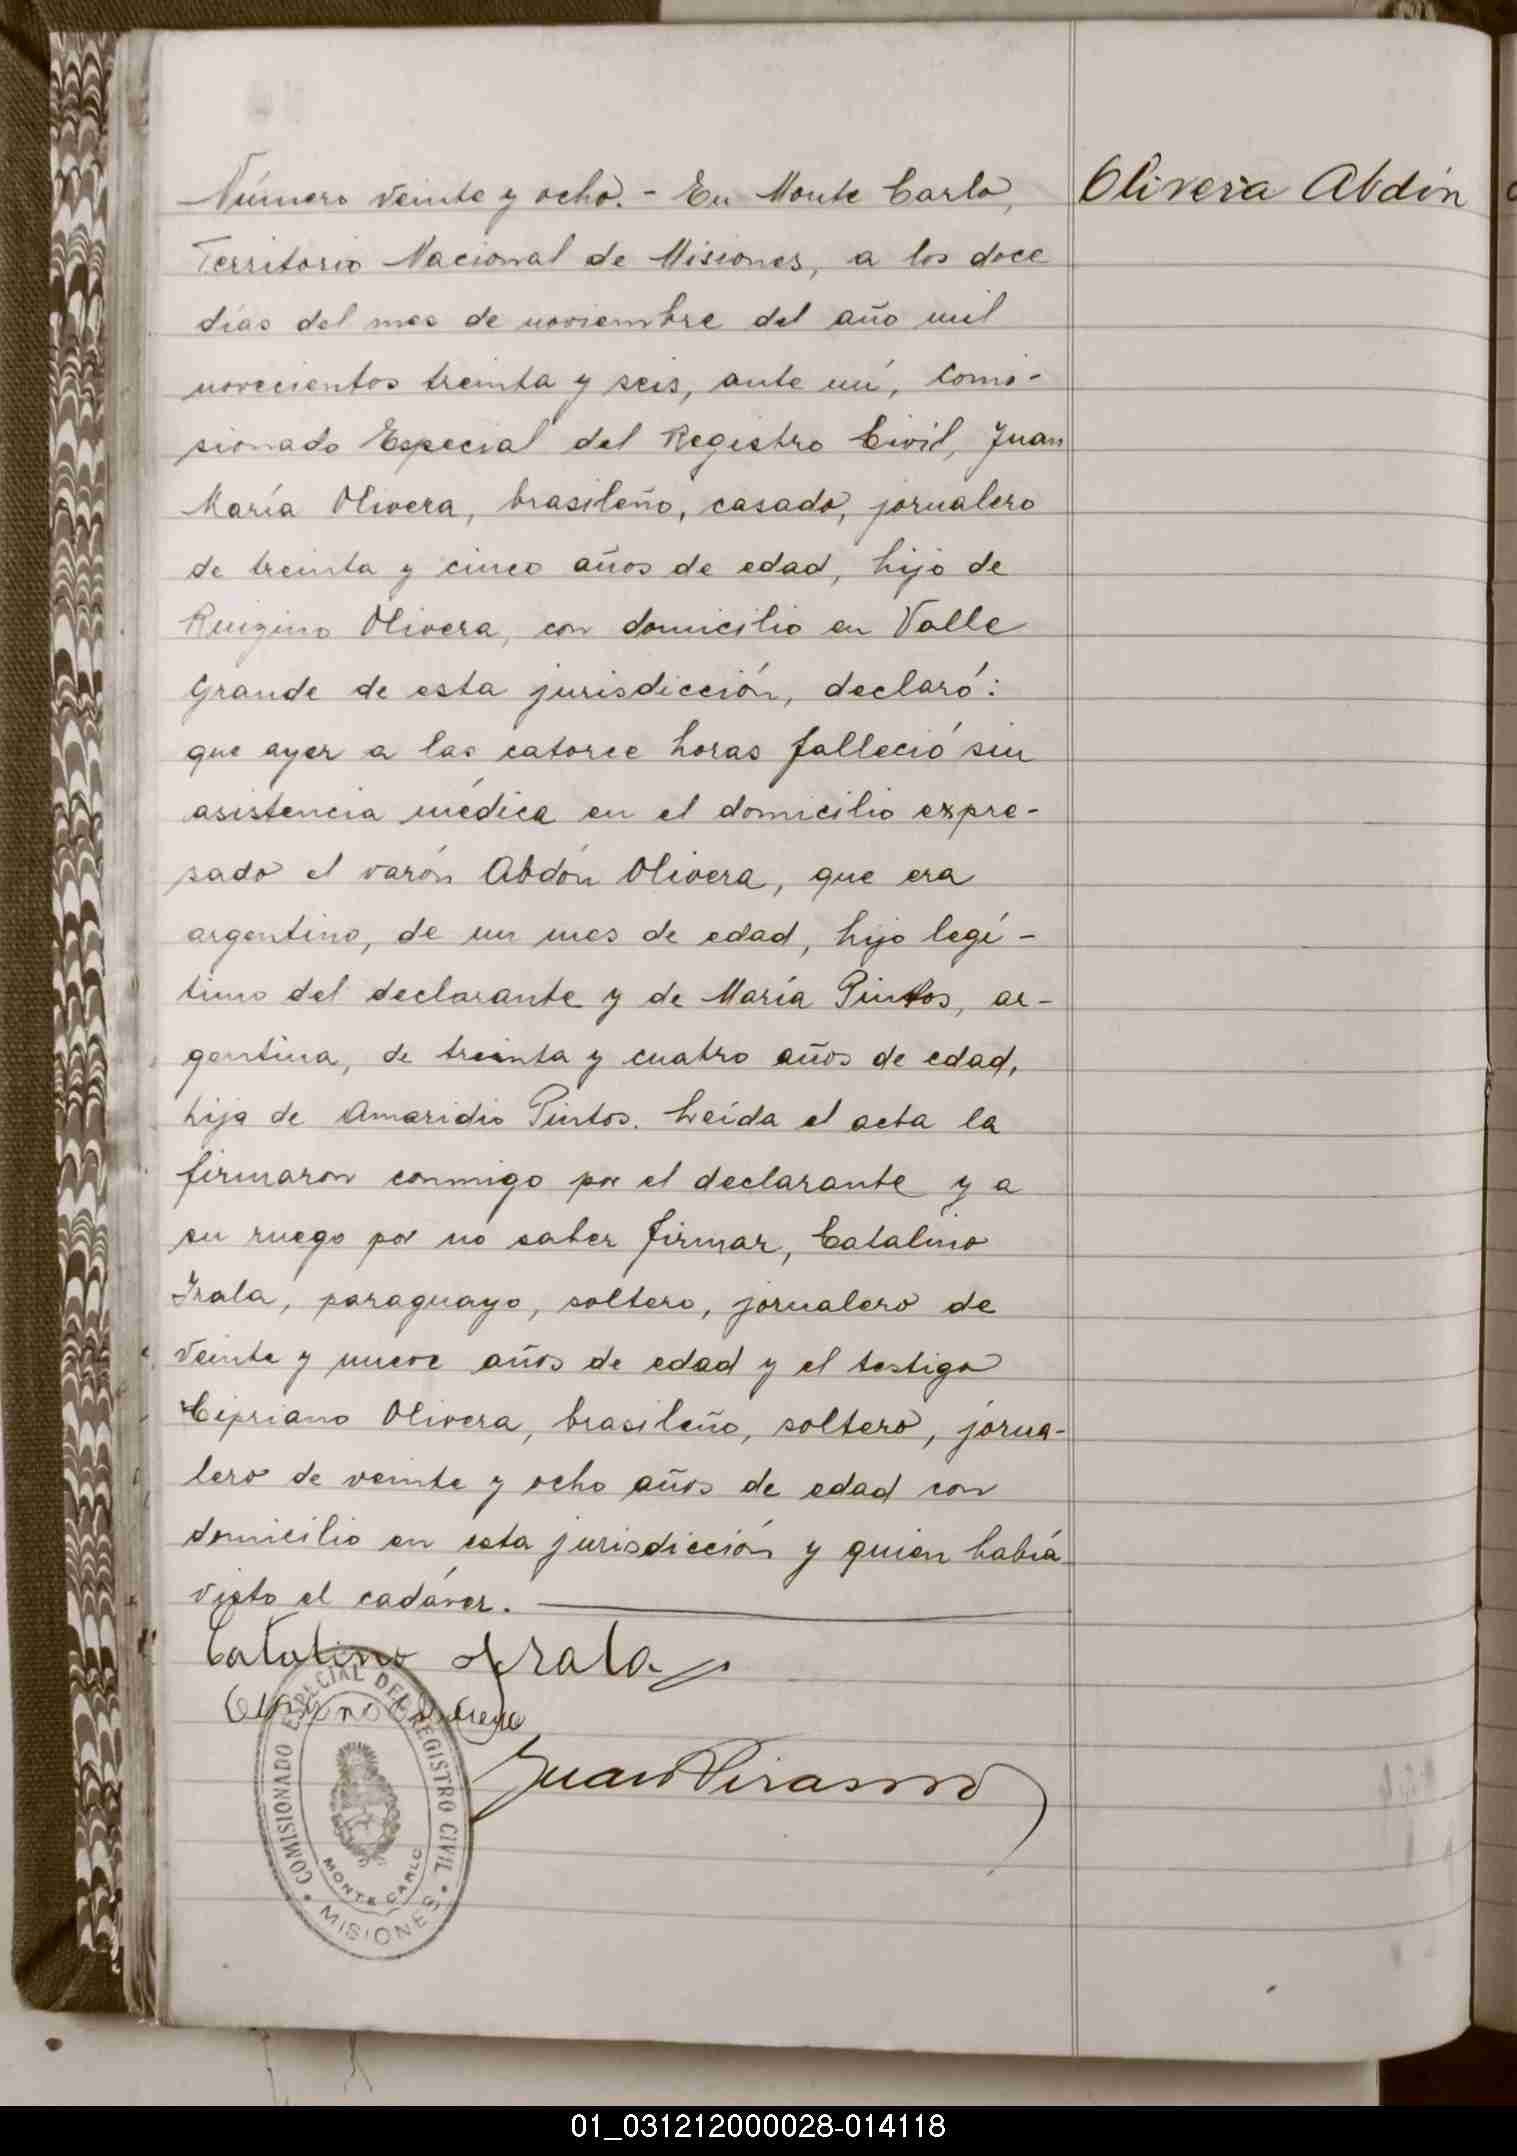 Olivera Abdón
Número veinte y ocho. - En Monte Carlo,
Territorio Nacional de Misiones, a los doce
días del mes de noviembre del año mil
novecientos treinta y seis, ante mí, Comi-
sionado Especial del Registro Civil, Juan
María Olivera, brasileño, casado, jornalero
de treinta y cinco años de edad, hijo de
Olivera, con domicilio en Valle
Grande de esta jurisdicción, declaró:
que ayer a las catorce horas falleció sin
asistencia médica en el domicilio expre-
sado el varón Abdón Olivera, que era
argentino, de un mes de edad, hijo legí-
timo del declarante y de María Pintos, ar-
gentina, de treinta y cuatro años de edad,
hija de Amaridio Pintos. Leída el acta la
firmaron conmigo por el declarante y a
su ruego por no saber firmar, Catalino
Irala, paraguayo, soltero, jornalero de
veinte y nueve años de edad y el testigo
Cipriano Olivera, brasileño, soltero, jorna-
lero de veinte y ocho años de edad con
domicilio en esta jurisdicción y quien había
visto el cadáver.
Catalino Irala
COMISIONADO ESPECIAL DEL REGISTRO CIVIL
MONTE CARLO
MISIONES
01_031212000028-014118